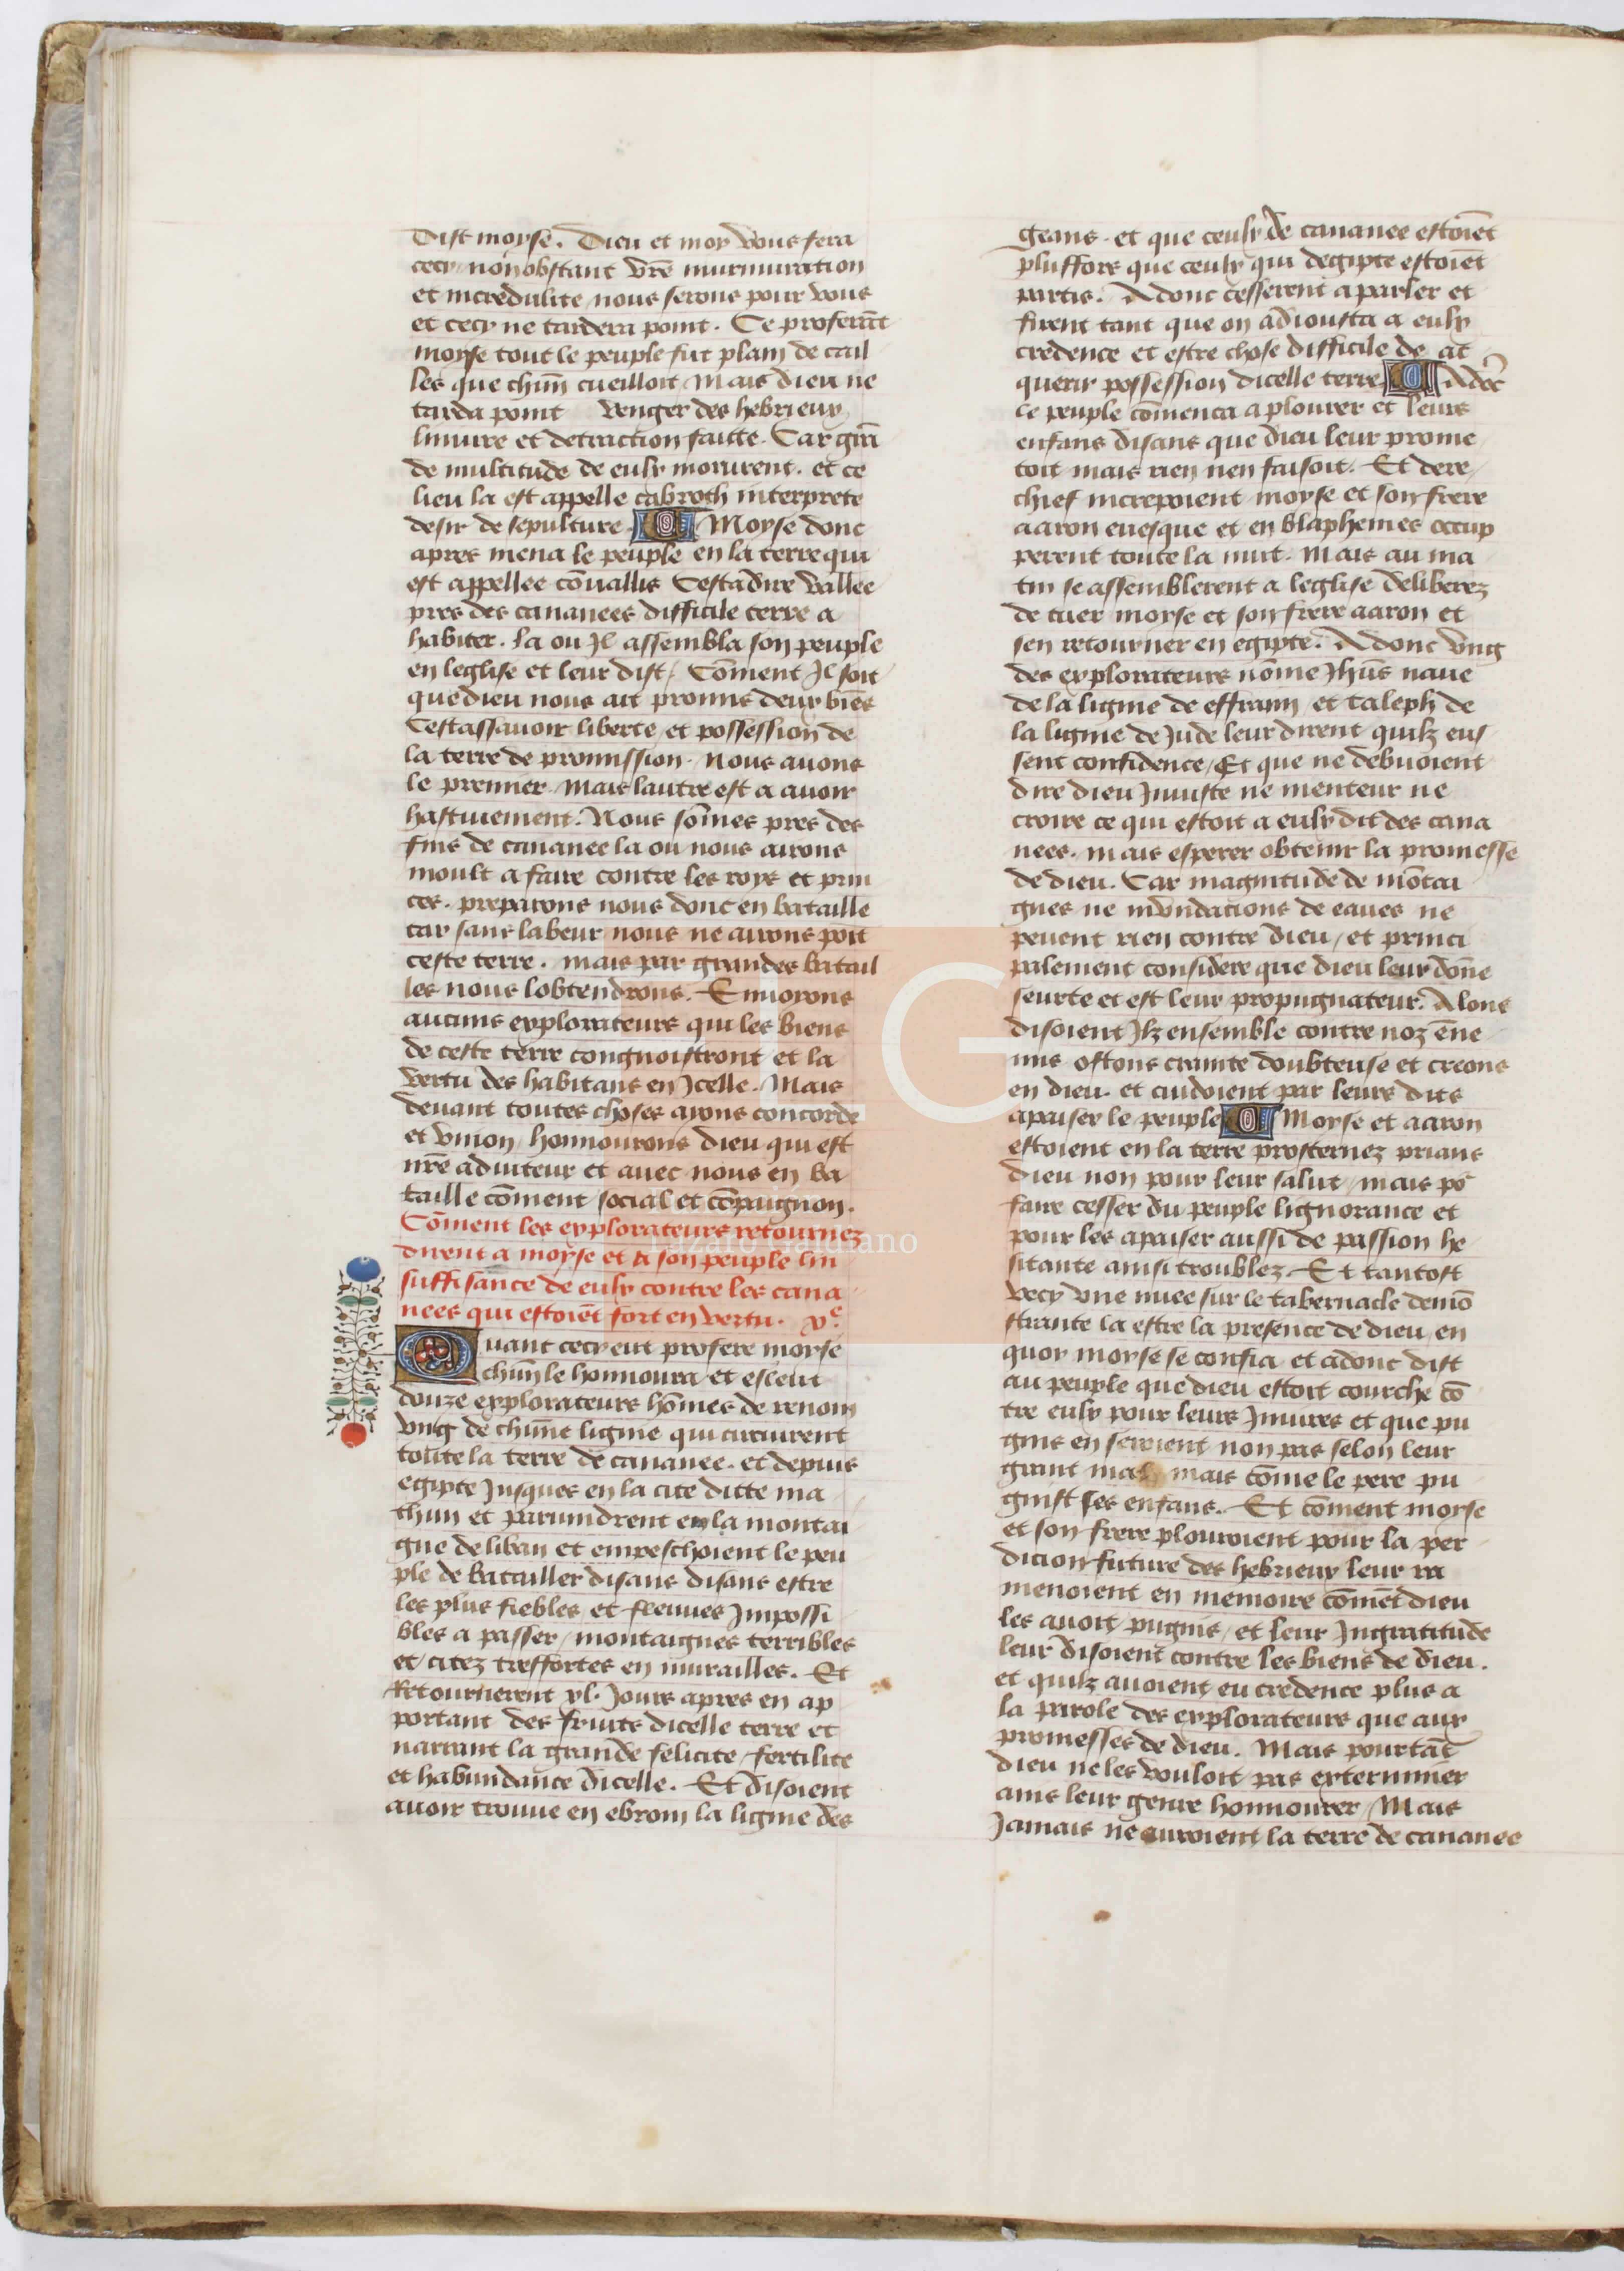 Dist moyse. Dieu et moy vous fera
cecy nonobstant vr̄e murmuration
et incredulite nous serons pour vous
et cecy ne tardera point. Ce proferāt
moyse tout le peuple fut plain de cail
les que chūn cueilloit Mais dieu ne
tarda point venger des hebrieux
liniure et detraction faitte. Car grā
de multitude de eulx morurent. et ce
lieu la est appelle cabroth interprete
desir de sepulture. Moyse donc
apres mena le peuple en la terre qui
est appellee cōuallis Cestadire vallee
pres des cananees difficile terre a
habiter. la ou Jl assembla son peuple
en leglise et leur dist / Cōment Jl soit
que dieu nous ait promis deux biēs
Cestassauoir liberte et possession de
la terre de promission. Nous auons
le premier Mais lautre est a auoir
hastiuement. Nous sōmes pres des
fins de cananee la ou nous aurons
moult a faire contre les roys et prin
ces. preparons nous donc en bataille
car sans labeur nous ne aurons poīt
ceste terre. mais par grandes batail
les nous lobtendrons. Enuoyons
aucuns explorateurs qui les biens
de ceste terre congnoistront et la
vertu des habitans en Jcelle. Mais
deuant toutes choses ayons concorde
et vnion / honnourons dieu qui est
nr̄e aduiteur et auec nous en ba
taille cōment social et cōpaignon.
Cōment les explorateurs retournez
dirent a moyse et a son peuple lin
suffisance de eulx contre les cana
nees qui estoiēt fort en vertu. v.e
Quant cecy eut profere moyse
chūn le honnoura / et esleut
douze explorateurs hōmes de renom
vng de chūne lignie qui circuirent
toute la terre de cananee. et depuis
egipte Jusques en la cite ditte ma
thun et paruindrent en la montai
gne de liban et empeschoient le peu
ple de batailler disans disans estre
les plus fiebles et fleuues Jmpossi
bles a passer / montaignes terribles
et citez treffortes en murailles. Et
Retournerent xl. Jours apres en ap
portant des fruits dicelle terre et
narrant la grande felicite / fertilite
et habundance dicelle. Et disoient
auoir trouue en ebrom la lignie des
geans. et que ceulx de cananee estoiēt
plus fors que ceulx qui degipte estoiēt
partis. Adonc cesserent a parler et
firent tant que on adiousta a eulx
credence et estre chose difficile de ac
querir possession dicelle terre Adōc
ce peuple cōmenca a plourer et leurs
enfans disans que dieu leur prome
toit mais rien nen faisoit. Et dere
chief increpoient moyse et son frere
aaron euesque et en blaphemes occup
perent toute la nuit. Mais au ma
tin se assemblerent a leglise deliberez
de tuer moyse et son frere aaron et
sen retourner en egipte. Adonc vng
des explorateurs nōme Jhūs naue
de la lignie de effraim et caleph de
la lignie de Jude leur dirent quilz eus
sent confidence / Et que ne debuoient
dire dieu Jniuste ne menteur ne
croire ce qui estoit a eulx dit des cana
nees. mais esperer obtenir la promesse
de dieu. Car magnitude de mōtai
gnes ne inundacions de eaues ne
peuent rien contre dieu / et princi
palement considere que dieu leur dōne
seurte et est leur propugnateur. Alons
disoient Jlz ensemble contre noz ēne
mis ostons crainte doubteuse et creons
en dieu. et cuidoient par leurs dits
apaiser le peuple Moyse et aaron
estoient en la terre prosternez prians
dieu non pour leur salut / mais po͛
faire cesser du peuple lignorance et
pour les apaiser aussi de passion he
sitante ainsi troublez. Et tantost
vecy vne nuee sur le tabernacle demō
strante la estre la presence de dieu / en
quoy moyse se confia et adonc dist
au peuple que dieu estoit courche cō
tre eulx pour leurs Jniures et que pu
gnis en seroient non pas selon leur
grant mal mais cōme le pere pu
gnist ses enfans. Et cōment moyse
et son frere plouroient pour la per
dicion future des hebrieux leur ra
menoient en memoire cōmēt dieu
les auoit pugnis / et leur Jngratitude
leur disoient contre les biens de dieu.
et quilz auoient eu credence plus a
la parole des explorateurs que aux
promesses de dieu. Mais pourtāt
dieu ne les vouloit pas exterminer
ains leur genre honnourer / Mais
Jamais ne auroient la terre de cananee
LG
Lázaro Galdiano